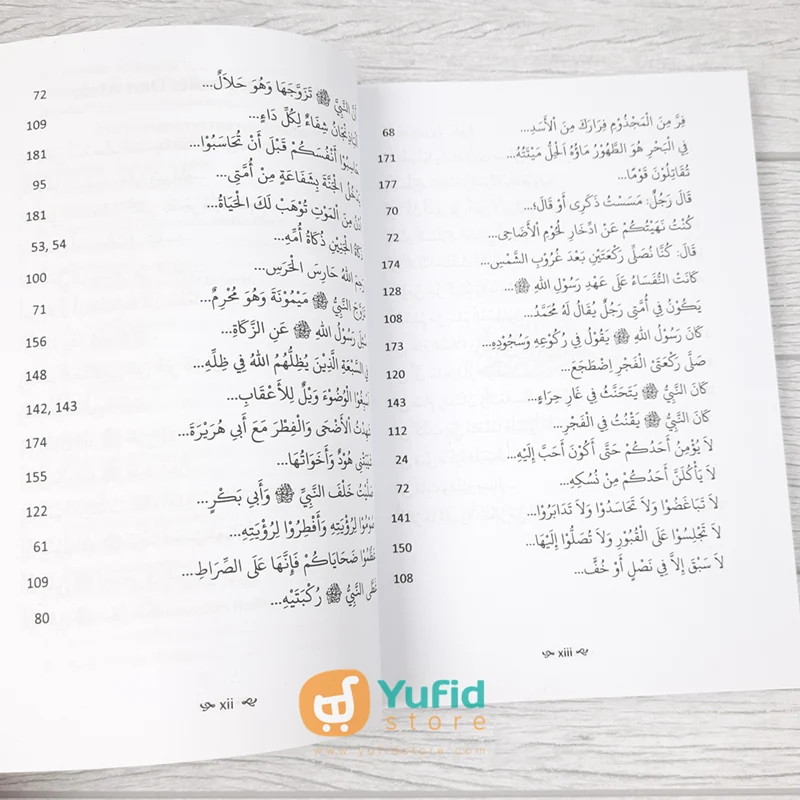 أَنَّ النَّبِيَّ ﷺ تَزَوَّجَهَا وَهُوَ حَلَالٌ... 72
الْبَاذِنْجَانُ شِفَاءٌ لِكُلِّ دَاءٍ... 109
حَاسِبُوْا أَنْفُسَكُمْ قَبْلَ أَنْ تُحَاسَبُوْا... 181
يَدْخُلُ الْجَنَّةَ بِشَفَاعَةٍ مِنْ أُمَّتِي... 95
مِنَ الْمَوْتِ تُوْهَبْ لَكَ الْحَيَاةُ... 181
ذَكَاةُ الْجَنِيْنِ ذَكَاةُ أُمِّهِ... 53, 54
رَحِمَ اللهُ حَارِسَ الْحَرَسِ... 100
تَزَوَّجَ النَّبِيُّ ﷺ مَيْمُوْنَةَ وَهُوَ مُحْرِمٌ... 71
سُئِلَ رَسُوْلُ اللهِ ﷺ عَنِ الزَّكَاةِ... 156
فِي السَّبْعَةِ الَّذِيْنَ يُظِلُّهُمُ اللهُ فِي ظِلِّهِ... 148
أَسْبِغُوا الْوُضُوْءَ وَيْلٌ لِلأَعْقَابِ... 142, 143
شَهِدْتُ الْأَضْحَى وَالْفِطْرَ مَعَ أَبِي هُرَيْرَةَ... 174
شَيَّبَتْنِي هُوْدٌ وَأَخَوَاتُهَا... 155
صَلَّيْتُ خَلْفَ النَّبِيِّ ﷺ وَأَبِي بَكْرٍ... 122
صُوْمُوْا لِرُؤْيَتِهِ وَأَفْطِرُوْا لِرُؤْيَتِهِ... 61
عَظِّمُوْا ضَحَايَاكُمْ فَإِنَّهَا عَلَى الصِّرَاطِ... 109
غَطَّى النَّبِيُّ ﷺ رُكْبَتَيْهِ... 80
xii
فِرَّ مِنَ الْمَجْذُوْمِ فِرَارَكَ مِنَ الْأَسَدِ... 68
فِي الْبَحْرِ هُوَ الطَّهُوْرُ مَاؤُهُ الْحِلُّ مَيْتَتُهُ... 171
تُقَاتِلُوْنَ قَوْمًا... 177
قَالَ رَجُلٌ: مَسَسْتُ ذَكَرِى أَوْ قَالَ:... 70
كُنْتُ نَهَيْتُكُمْ عَنْ ادِّخَارِ لُحُوْمِ الْأَضَاحِي... 72
قَالَ: كُنَّا نُصَلِّي رَكْعَتَيْنِ بَعْدَ غُرُوْبِ الشَّمْسِ... 174
كَانَتِ النُّفَسَاءُ عَلَى عَهْدِ رَسُوْلِ اللهِ ﷺ... 128
يَكُوْنُ فِي أُمَّتِي رَجُلٌ يُقَالُ لَهُ مُحَمَّدُ... 108
كَانَ رَسُوْلُ اللهِ ﷺ يَقُوْلُ فِي رُكُوْعِهِ وَسُجُوْدِهِ... 173
صَلَّى رَكْعَتَيْ الْفَجْرِ اِضْطَجَعَ... 120
كَانَ النَّبِيُّ ﷺ يَتَحَنَّثُ فِي غَارِ حِرَاءٍ... 143
كَانَ النَّبِيُّ ﷺ يَقْنُتُ فِي الْفَجْرِ... 112
لاَ يُؤْمِنُ أَحَدُكُمْ حَتَّى أَكُوْنَ أَحَبَّ إِلَيْهِ... 24
لاَ يَأْكُلَنَّ أَحَدُكُمْ مِنْ نُسُكِهِ... 72
لاَ تَبَاغَضُوْا وَلاَ تَحَاسَدُوْا وَلاَ تَدَابَرُوْا... 141
لاَ تَجْلِسُوْا عَلَى الْقُبُوْرِ وَلاَ تُصَلُّوْا إِلَيْهَا... 150
لاَ سَبَقَ إِلاَّ فِي نَصْلٍ أَوْ خُفٍّ... 108
xiii
Yufid
store
www.yufidstore.com